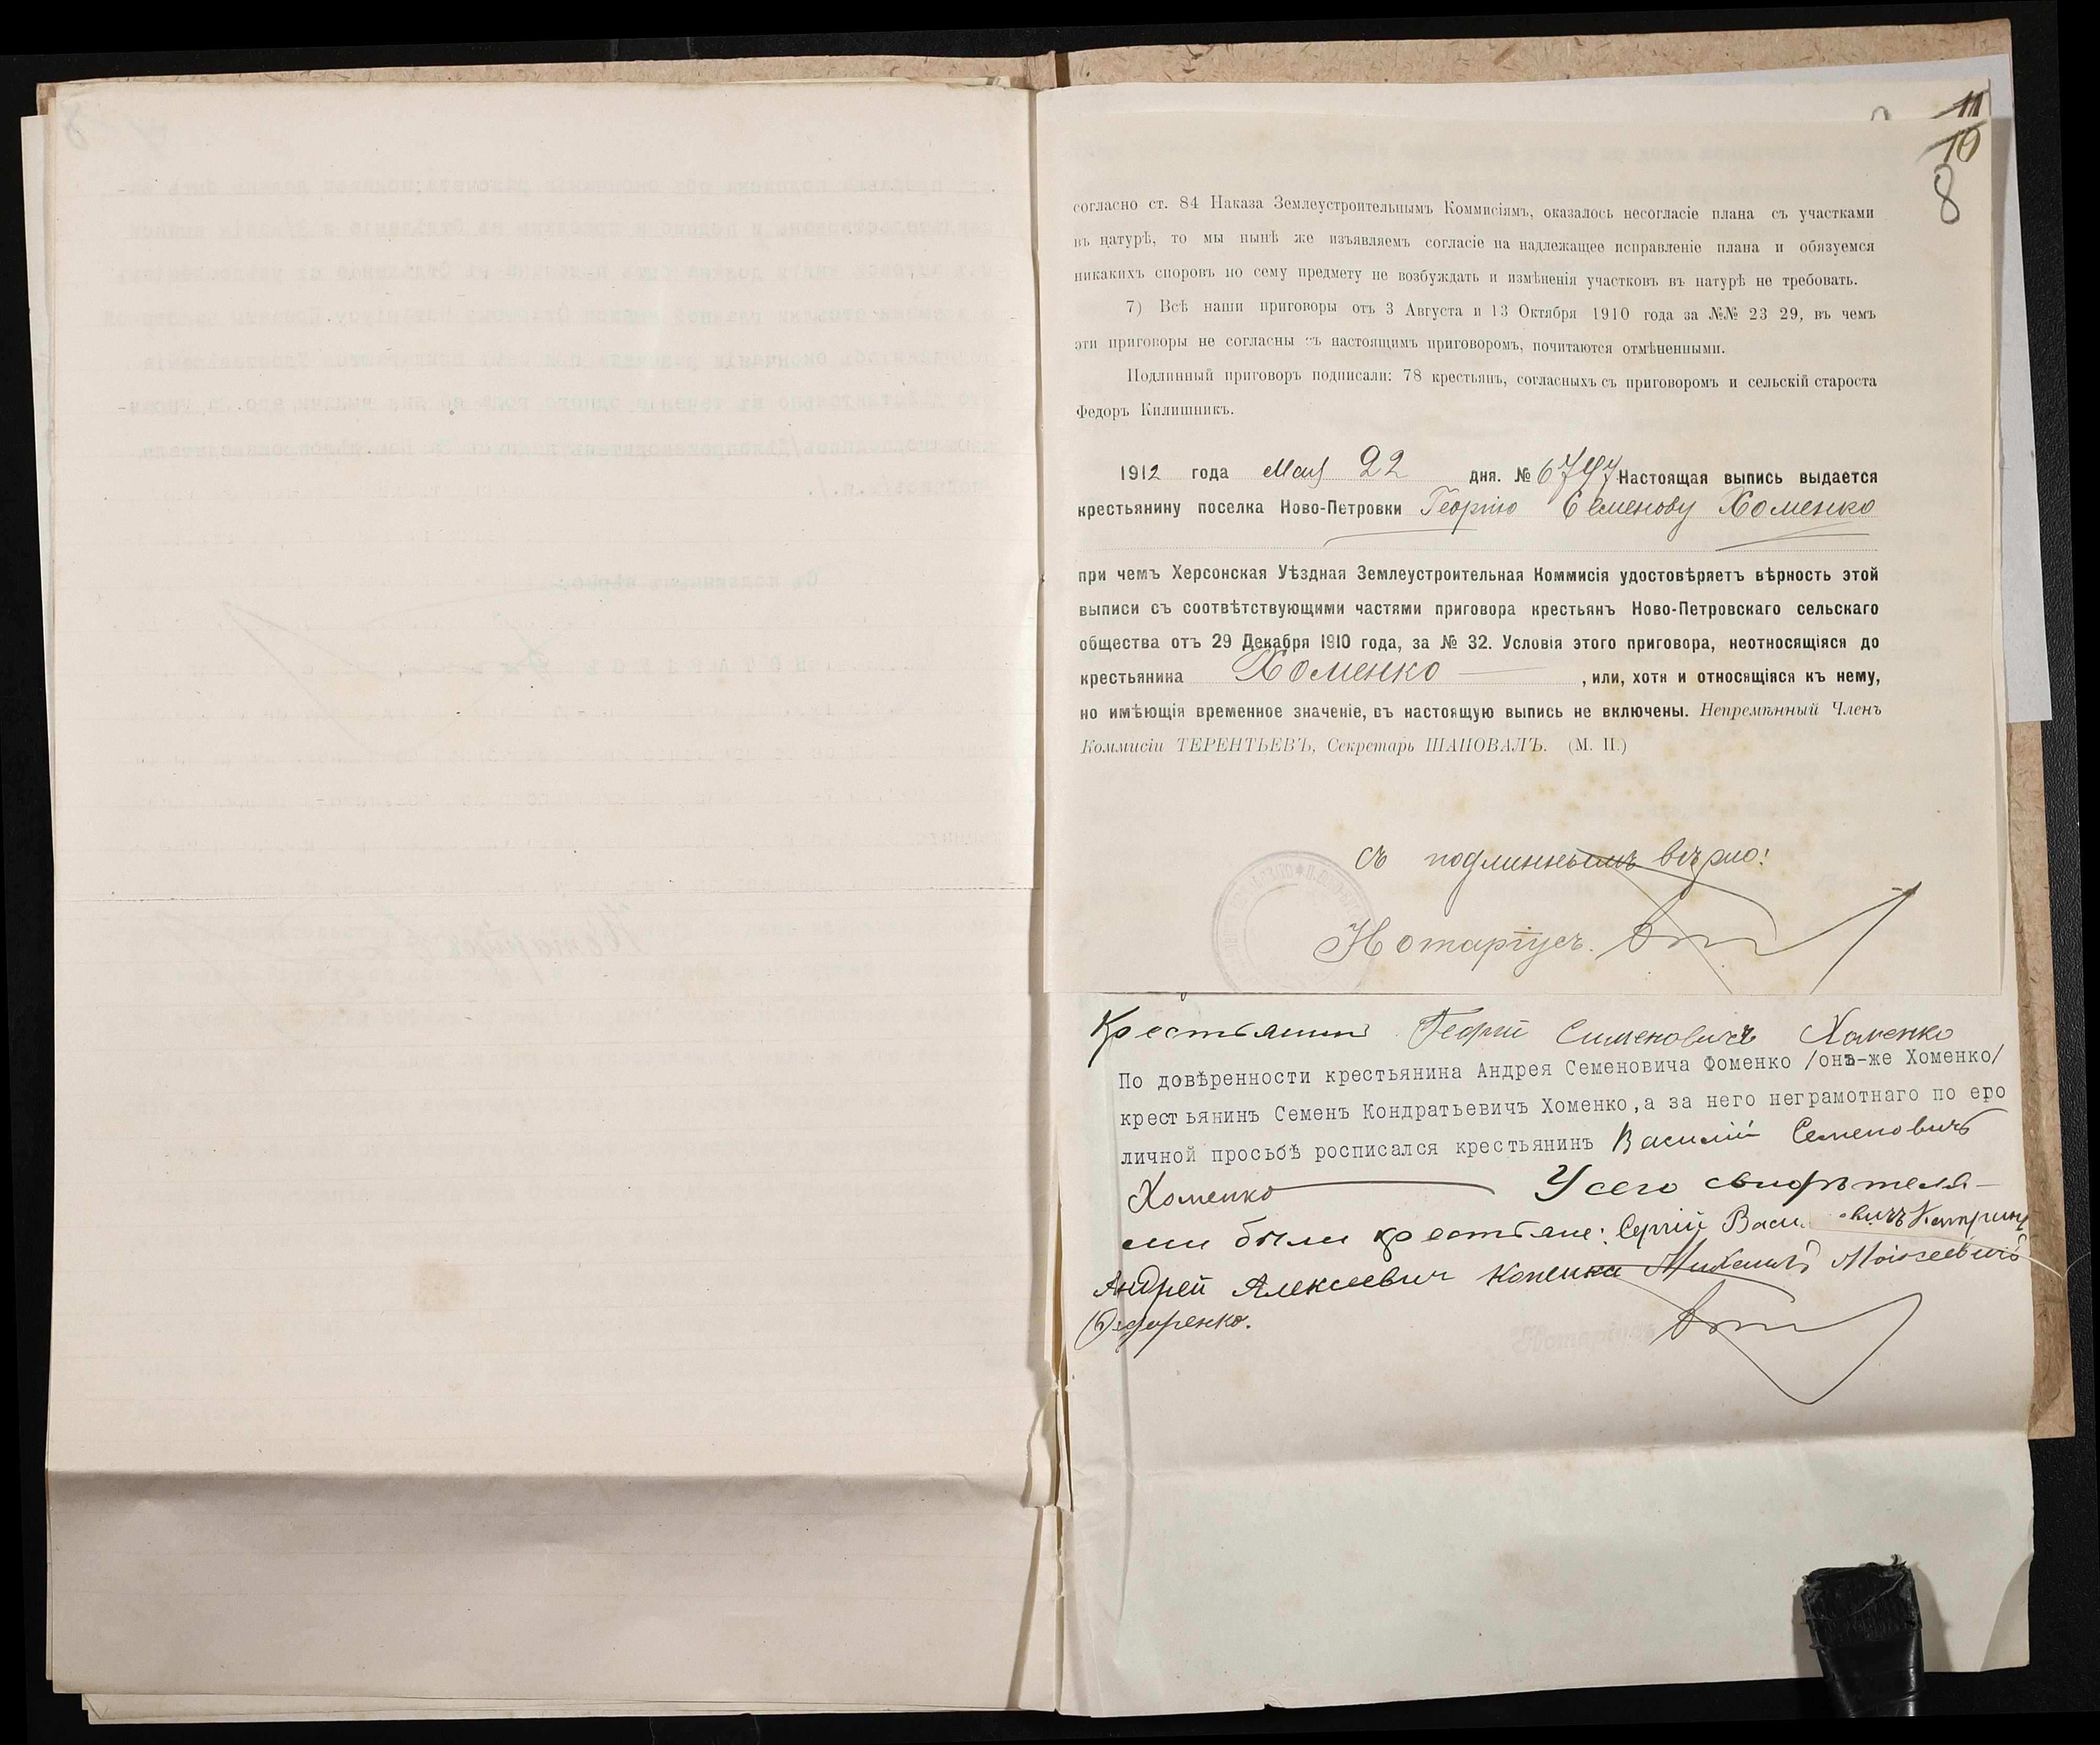 11
10
8
согласно ст. 84 Наказа Землеустроительнымъ Коммисіямъ, оказалось несогласіе плана съ участками
въ натурѣ, то мы нынѣ же изъявляемъ согласіе на надлежащее исправленіе плана и обязуемся
никакихъ споровъ по сему предмету не возбуждать и измѣненія участковъ въ натурѣ не требовать.
7) Всѣ наши приговоры отъ 3 Августа и 13 Октября 1910 года за №№ 23 29, въ чемъ
эти приговоры не согласны съ настоящимъ приговоромъ, почитаются отмѣненными.
Подлинный приговоръ подписали: 78 крестьянъ, согласныхъ съ приговоромъ и сельскій староста
Федоръ Килишникъ.
1912 года Мая 22 дня. № 6797 Настоящая выпись выдается
крестьянину поселка Ново-Петровки Георгію Семенову Хоменко
при чемъ Херсонская Уѣздная Землеустроительная Коммисія удостовѣряетъ вѣрность этой
выписи съ соотвѣтствующими частями приговора крестьянъ Ново-Петровскаго сельскаго
общества отъ 29 Декабря 1910 года, за № 32. Условія этого приговора, неотносящіяся до
крестьянина Хоменко , или, хотя и относящіяся къ нему,
но имѣющія временное значеніе, въ настоящую выпись не включены. Непремѣнный Членъ
Коммисіи ТЕРЕНТЬЕВЪ, Секретарь ШАПОВАЛЪ. (М. П.)
Съ подлиннымъ вѣрно:
Нотаріусъ.
Крестьянинъ Георгій Сименовичъ Хоменко
По довѣренности крестьянина Андрея Семеновича Фоменко /онъ-же Хоменко/
крестьянинъ Семенъ Кондратьевичъ Хоменко,а за него неграмотнаго по еро
личной просьбѣ росписался крестьянинъ Василій Семеновичъ
Хоменко У сего свидѣтеля-
ми были крестьяне: Сергій
Андрей Алексеевич Михаилъ Моисеевичъ
Федоренко.
Нотаріусъ